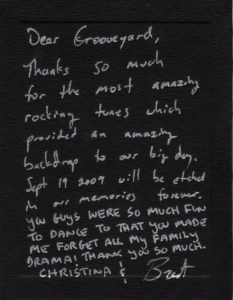 Dear Grooveyard,
Thanks so much
for the most amazing
rocking tunes which
provided an amazing
backdrop to our big day.
Sept 19 2009 will be etched
in our memories forever.
YOU GUYS WERE SO MUCH FUN
TO DANCE TO THAT YOU MADE
ME FORGET ALL MY FAMILY
DRAMA! THANK YOU SO MUCH.
CHRISTINA & Brett